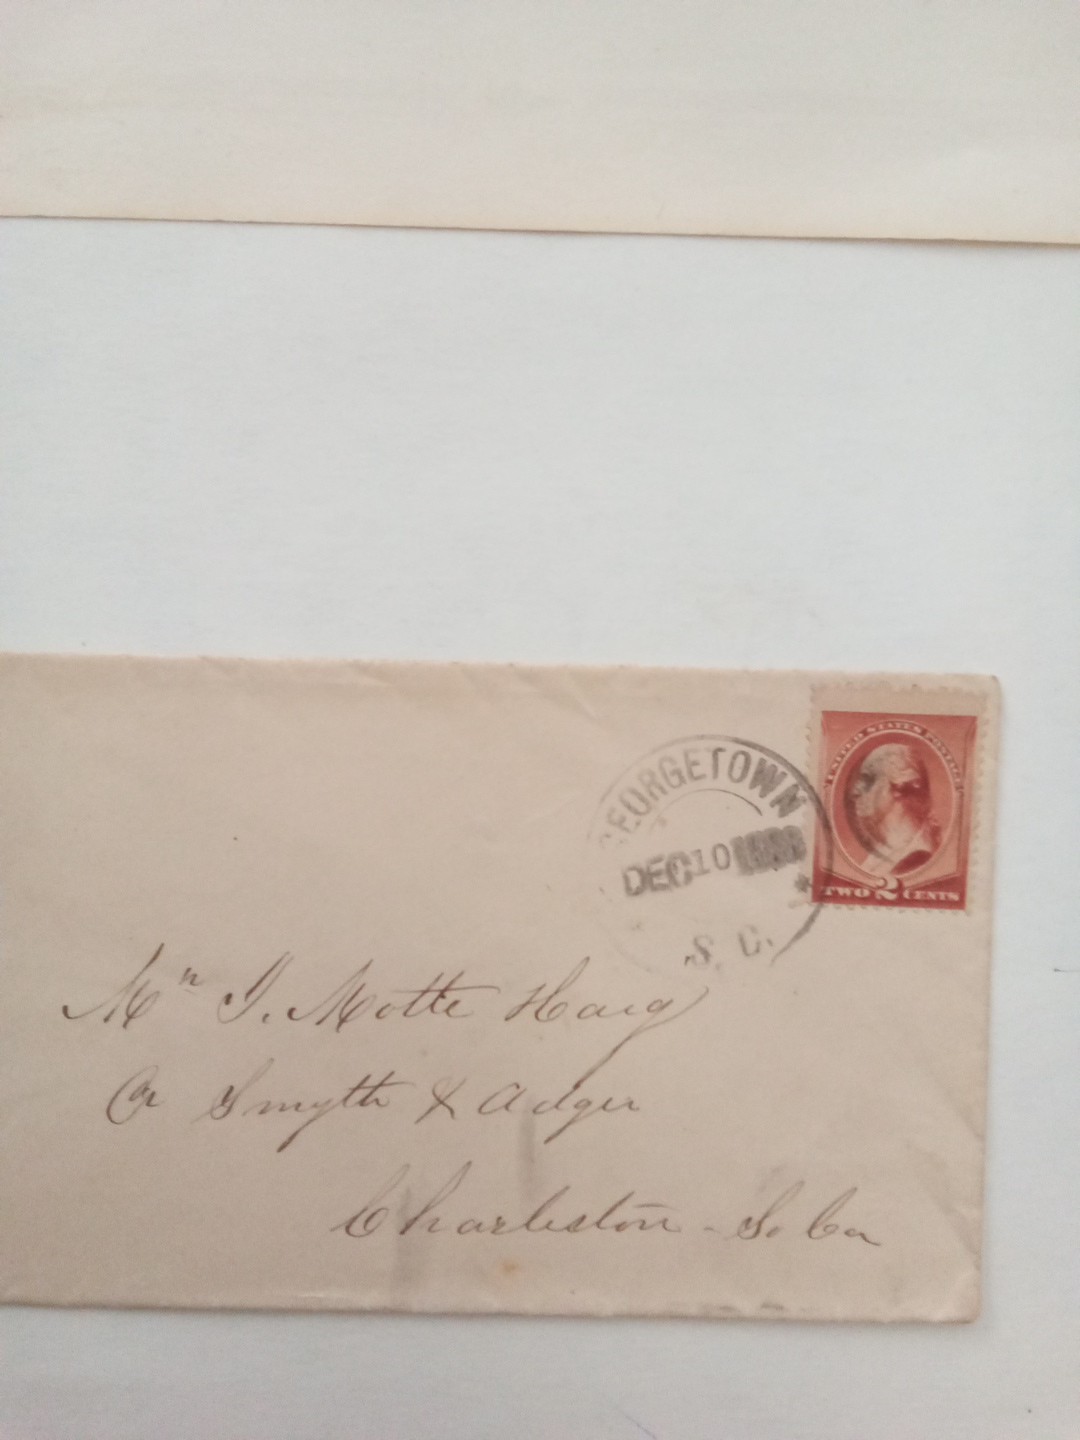 GEORGETOWN
DEC 10
S. C.
UNITED STATES POSTAGE
TWO 2 CENTS
Mr J. Motte Haig
Cr Smyth & Adger
Charleston - So Ca